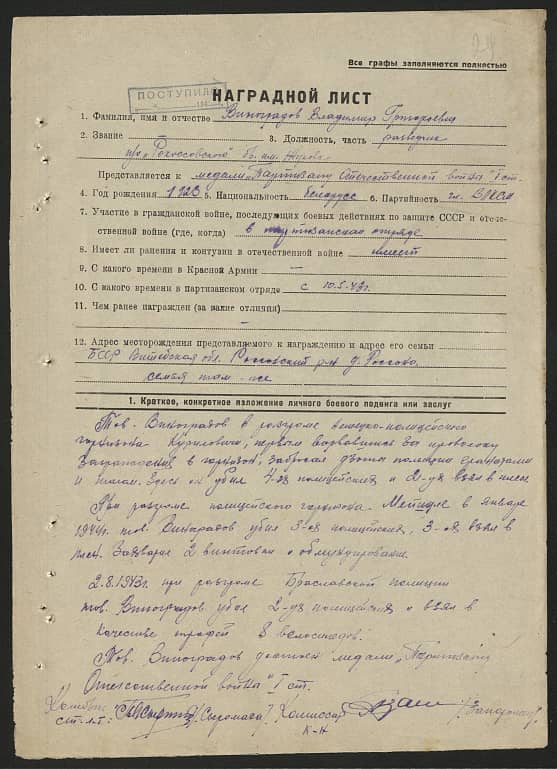 Все графы заполняются полностью
24
ПОСТУПИЛ
НАГРАДНОЙ ЛИСТ
1. Фамилия, имя и отчество Виноградов Владимир Григорьевич
2. Звание 3. Должность, часть разведчик
п/о „Рокоссовского" бр. им. Жукова
Представляется к медали „Партизану Отечественной войны" I ст.
4. Год рождения 1923 5. Национальность беларусс 6. Партийность чл. ВЛКСМ
7. Участие в гражданской войне, последующих боевых действиях по защите СССР и отече-
ственной войне (где, когда) в партизанском отряде
8. Имеет ли ранения и контузии в отечественной войне имеет
9. С какого времени в Красной Армии —
10. С какого времени в партизанском отряде с 10.5.43г.
11. Чем ранее награжден (за какие отличия)
—
12. Адрес месторождения представляемого к награждению и адрес его семьи
БССР Витебская обл. р-н д.
семья там-же
1. Краткое, конкретное изложение личного боевого подвига или заслуг
Тов. Виноградов в разгроме немецко-полицейского
гарнизона первым ворвавшись за проволоку
заграждения в гарнизон, забросал дзоты полиции гранатами
и толом. Здесь он убил 4-ех полицейских и 2-ух взял в плен.
При разгроме полицейского гарнизона в январе
1944г. тов. Виноградов убил 3-ех полицейских, 3-ех взял в
плен. 2 винтовки и обмундирование.
2.8.1943г. при разгроме Браславской полиции
тов. Виноградов убил 2-ух полицейских и взял в
качестве трофей 8 велосипедов.
Тов. Виноградов достоин медали „Партизану
Отечественной войны" I ст.
ст. л-т: Комиссар
к-н